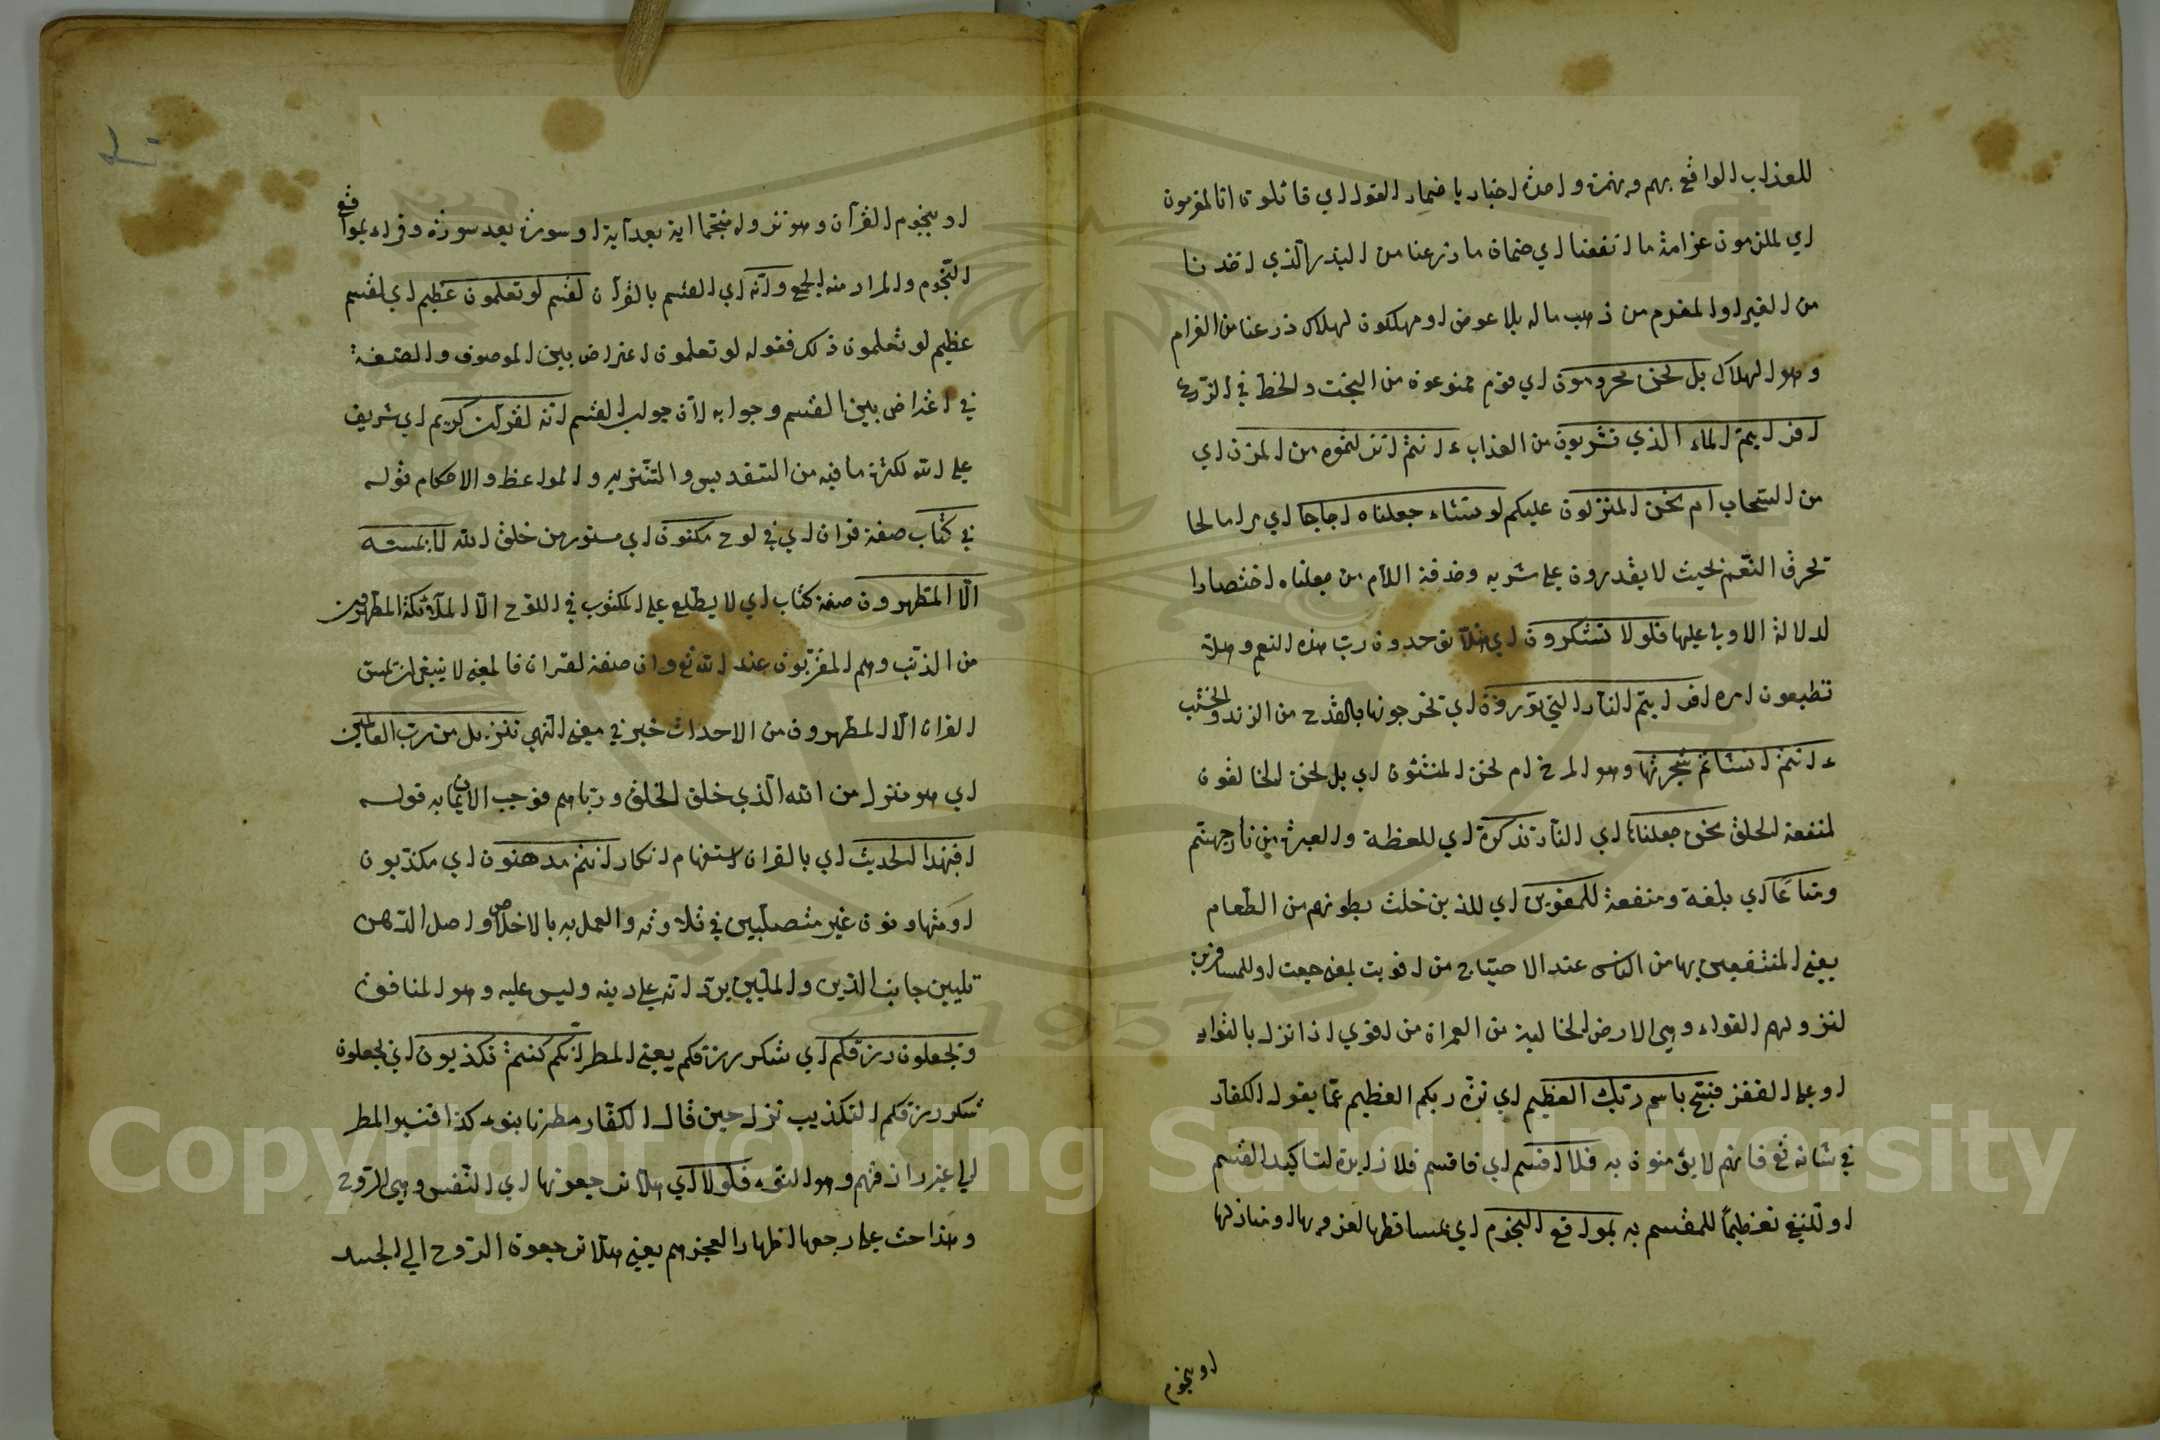 للعذاب الواقع بهم وبهمزة واحدة اخبار باضمار القول اي قائلون انا لمغرمون
اي لملزمون غرامة ما انفقنا اي ضمان ما زرعنا من البذر الذي اخذنا
من الغير او المغرم من ذهب ماله بلا عوض او مهلكون لهلاك زرعنا من الغرام
وهو الهلاك بل نحن محرومون اي قوم ممنوعون من البخت والحظ في الزرع
افرايتم الماء الذي تشربون من العذاب ءانتم انزلتموه من المزن اي
من السحاب ام نحن المنزلون عليكم لو نشاء جعلناه اجاجا اي مرا مالحا
تحرق الفم بحيث لا يقدرون على شربه وحذفة اللام من جعلناه اختصارا
لدلالة الاولى عليها فلولا تشكرون اي هلا توحدون رب هذه النعم وهلا
تطيعون امره افرايتم النار التي تورون اي تخرجونها بالقدح من الزند والخشب
ءانتم انشاتم شجرتها وهو المرخ ام نحن المنشئون اي بل نحن الخالقون
لمنفعة الخلق نحن جعلناها اي النار تذكرة اي للعظة والعبرة من نار جهنم
ومتاعا اي بلغة ومنفعة للمقوين اي للذين خلت بطونهم من الطعام
يعني المنتفعين بها من الناس عند الاحتياج من اقويت بمعنى جعت او للمسافرين
لنزولهم القواء وهي الارض الخالية من العمران من اقوي اذا نزل بالقواء
او على القفر فسبح باسم ربك العظيم اي نزه ربكم العظيم عما يقول الكفار
في شانه تع فانهم لا يؤمنون به فلا اقسم اي فاقسم فلا زايدة لتاكيد القسم
او للنفي تعظيما للمقسم به بمواقع النجوم اي مساقطها لغروبها او منازلها
او بنجوم
او بنجوم القرآن وهو نزوله منجما اية بعد آية او سورة بعد سورة وقراء بمواقع
النجوم والمراد منه الجمع وانه اي القسم بالقرآن لقسم لو تعلمون عظيم اي لقسم
عظيم لو تعلمون ذلك فقوله لو تعلمون اعتراض بين الموصوف والصفة
في اعتراض بين القسم وجوابه لان جواب القسم انه لقرآن كريم اي شريف
على الله لكثرة ما فيه من التقديس والتنزيه والمواعظ والاحكام قوله
في كتاب صفة قران اي في لوح مكنون اي مستور من خلق الله لا يمسه
الا المطهرون صفة كتاب اي لا يطلع على المكتوب في اللوح الا الملائكة المطهرون
من الذنب وهم المقربون عند الله تع وان صفة لقران فالمعنى لا ينبغي ان يمس
القران الا المطهرون من الاحداث خبر في معنى النهي تنزيل من رب العالمين
اي هو منزل من الله الذي خلق الخلق ورباهم فوجب الايمان به قوله
افبهذا الحديث اي بالقران استفهام انكار انتم مدهنون اي مكذبون
او متهاونون غير متصلبين في تلاوته والعمل به بالاخلاص واصل الدهن
تليين جانب الدين والملين يرد انه على دينه وليس عليه وهو المنافق
وتجعلون رزقكم اي شكر رزقكم يعني المطر انكم كنتم تكذبون اي تجعلون
شكر رزقكم التكذيب نزل حين قال الكفار مطرنا بنوء كذا فنسبوا المطر
الي غير رازقهم وهو النوء فلولا اي هلا ترجعونها اي النفس وهي الروح
وهذا حث على رجعها اظهار العجزهم يعني هلا ترجعون الروح الي الجسد
Copyright © King Saud University
1957